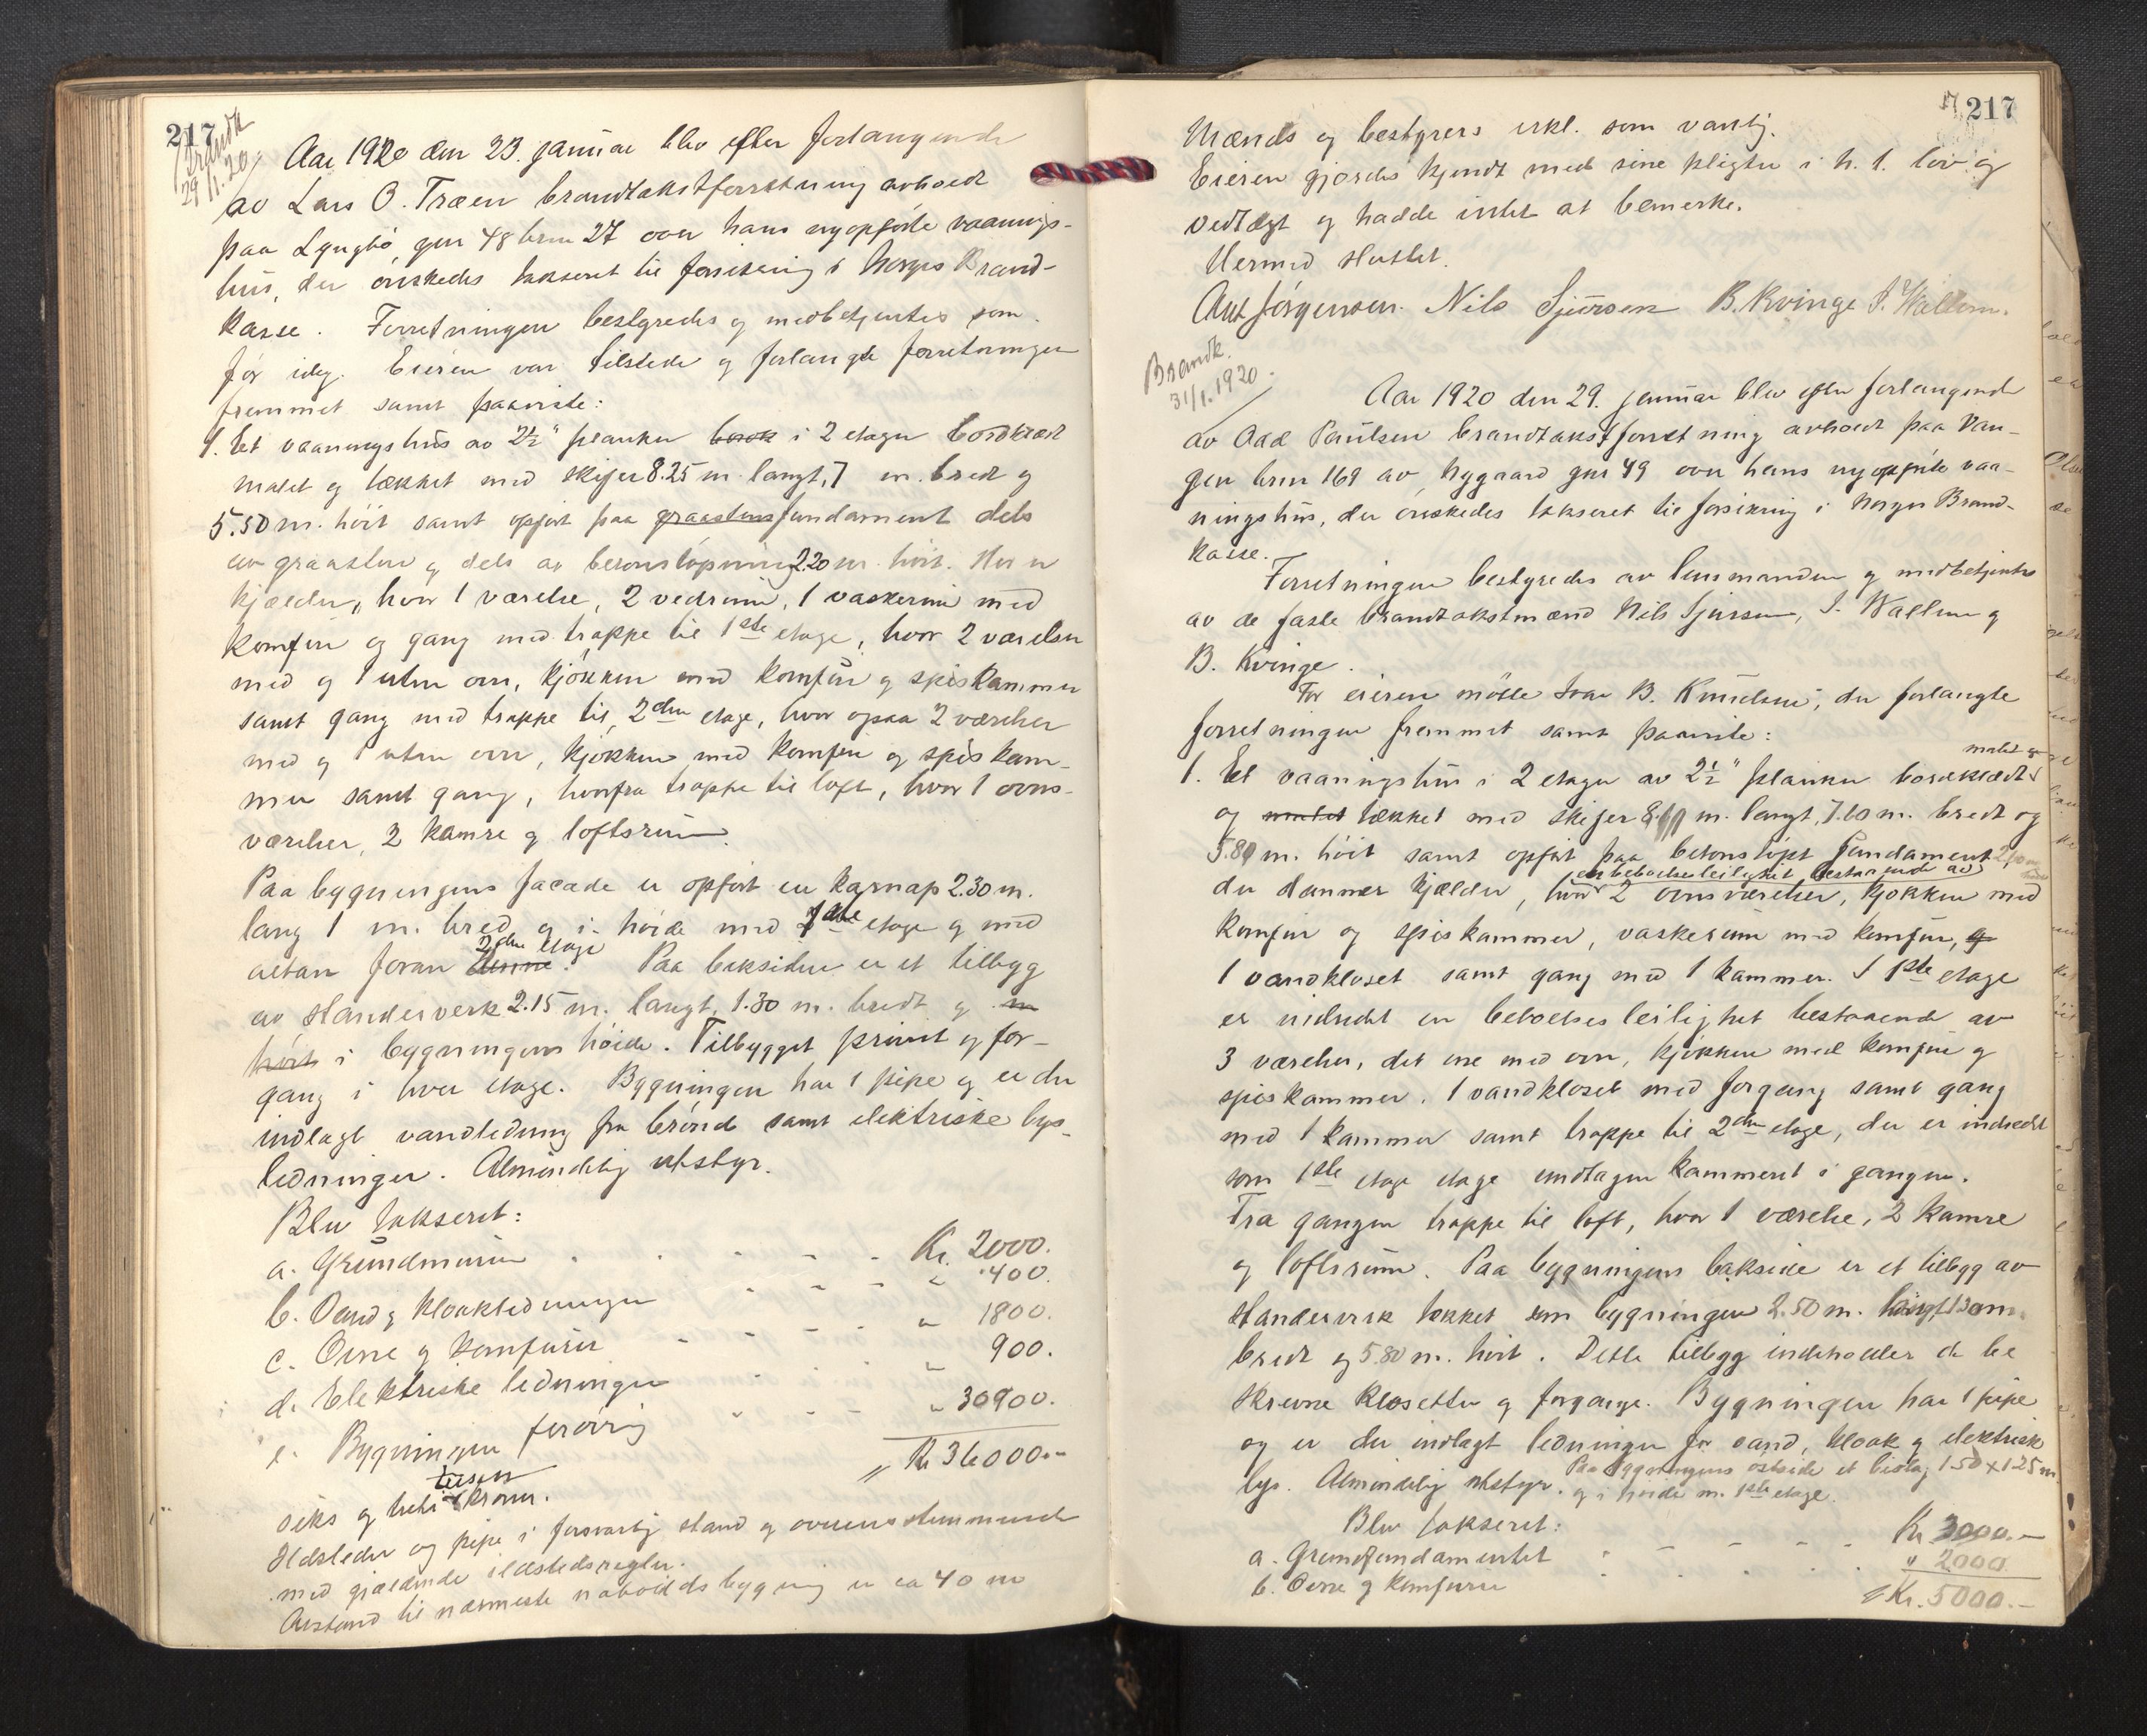 217
Brandk
29/1.20
Aar 1920 den 23. januar blev efter forlangende
av Lars O. Træen brandtakstforretning avholdt
paa Lyngbø gnr 48 brnr 27 over hans nyopførte vaanings-
hus, der ønskedes takseret til forsikring i Norges Brand-
kasse. Forretningen bestyredes og medbetjentes som
før idag. Eieren var tilstede og forlangte forretningen
fremmet samt paaviste:
1. Et vaaningshus av 2½" planker i 2 etager bordklædt
malet og tækket med skifer 8.25 m. langt, 7 m. bredt og
5.50 m. høit samt opført paa graastensfundament dels
av graasten og dels av betonstøpning 2.20 m. høit. Her er
kjælder, hvor 1 værelse, 2 vedrum, 1 vaskerum med
komfur og gang med trappe til 1ste etage, hvor 2 værelser
med og 1 uten ovn, kjøkken med komfur og spiskammer
samt gang med trappe til 2den etage, hvor ogsaa 2 værelser
med og 1 uten ovn, kjøkken med komfur og spiskam-
mer samt gang, hvorfra trappe til loft, hvor 1 ovns-
værelser, 2 kamre og loftsrum.
Paa bygningens facade er opført en karnap 2.30 m.
lang 1 m. bred og i høide med 1ste etage og med
altan foran denne. 2den etage Paa baksiden er et tilbygg
av standerverk 2.15 m. langt, 1.30 m. bredt og m
høit i bygningens høide. Tilbygget privet og for-
gang i hver etage. Bygningen har 1 pipe og er der
indlagt vandledning fra brønd samt elektriske lys-
ledninger. Almindelig utstyr.
Blev takseret:
a. Grundmuren Kr. 2000.
b. Vand og kloakledninger " 400.
c. Ovne og komfurer " 1800.
d. Elektriske ledninger " 900.
e. Bygningen forøvrig " 30900.
Kr 36000.-
seks og treti tusen kroner.
Ildsteder og pipe i forsvarlig stand og overensstemmende
med gjældende ildstedsregler.
Avstand til nærmeste naboilds bygning er ca 40 m
217
Mænds og bestyrers erkl. som vanlig.
Eieren gjordes kjendt med sine pligter i h. t. lov og
vedtægt og hadde intet at bemerke.
Hermed sluttet.
Ant Jørgensen. Nils Sjursen B. Kvinge J. Wallem.
Brandk.
31/1.1920.
Aar 1920 den 29. januar blev efter forlangende
av Odd Paulsen brandtakstforretning avholdt paa Van-
gen brnr 169 av Nygaard gnr 49 over hans nyopførte vaa-
ningshus, der ønskedes takseret til forsikring i Norges Brand-
kasse.
Forretningen bestyredes av lensmanden og medbetjentes
av de faste brandtakstmænd Nils Sjursen, J. Wallem og
B. Kvinge.
For eieren møtte Ivar B. Knudsen, der forlangte
forretningen fremmet samt paaviste:
1. Et vaaningshus i 2 etager av 2½" planker bordklædt malet og
og malet tækket med skifer m. langt, 7.60 m. bredt og
5.80 m. høit samt opført paa betonstøpt fundament
der danner kjælder, hvor en beboelsesleilighet bestaaende av 2 ovnsværelser, kjøkken med
komfur og spiskammer, vaskerum med komfur, og
1 vandkloset samt gang med 1 kammer. I 1ste etage
er indredet en beboelsesleilighet bestaaende av
3 værelser, det ene med ovn, kjøkken med komfur og
spiskammer. 1 vandkloset med forgang samt gang
med 1 kammer samt trappe til 2den etage, der er indredet
som 1ste etage etage undtagen kammeret i gangen.
Fra gangen trappe til loft, hvor 1 værelse, 2 kamre
og loftsrum. Paa bygningens bakside er et tilbygg av
standerverk tækket som bygningen 2.50 m. langt 1.30 m.
bredt og 5.80 m. høit. Dette tilbygg indeholder de be
skrevne klosetter og forgange. Bygningen har 1 pipe
og er der indlagt ledninger for vand, kloak og elektrisk
lys. Almindelig utstyr. Paa bygningens østside et bislag 1.50 x 1.25 m
og i høide m. 1ste etage.
Blev takseret:
a. Grundfundamentet Kr 3000.-
b. Ovne og komfurer " 2000
Kr. 5000.-